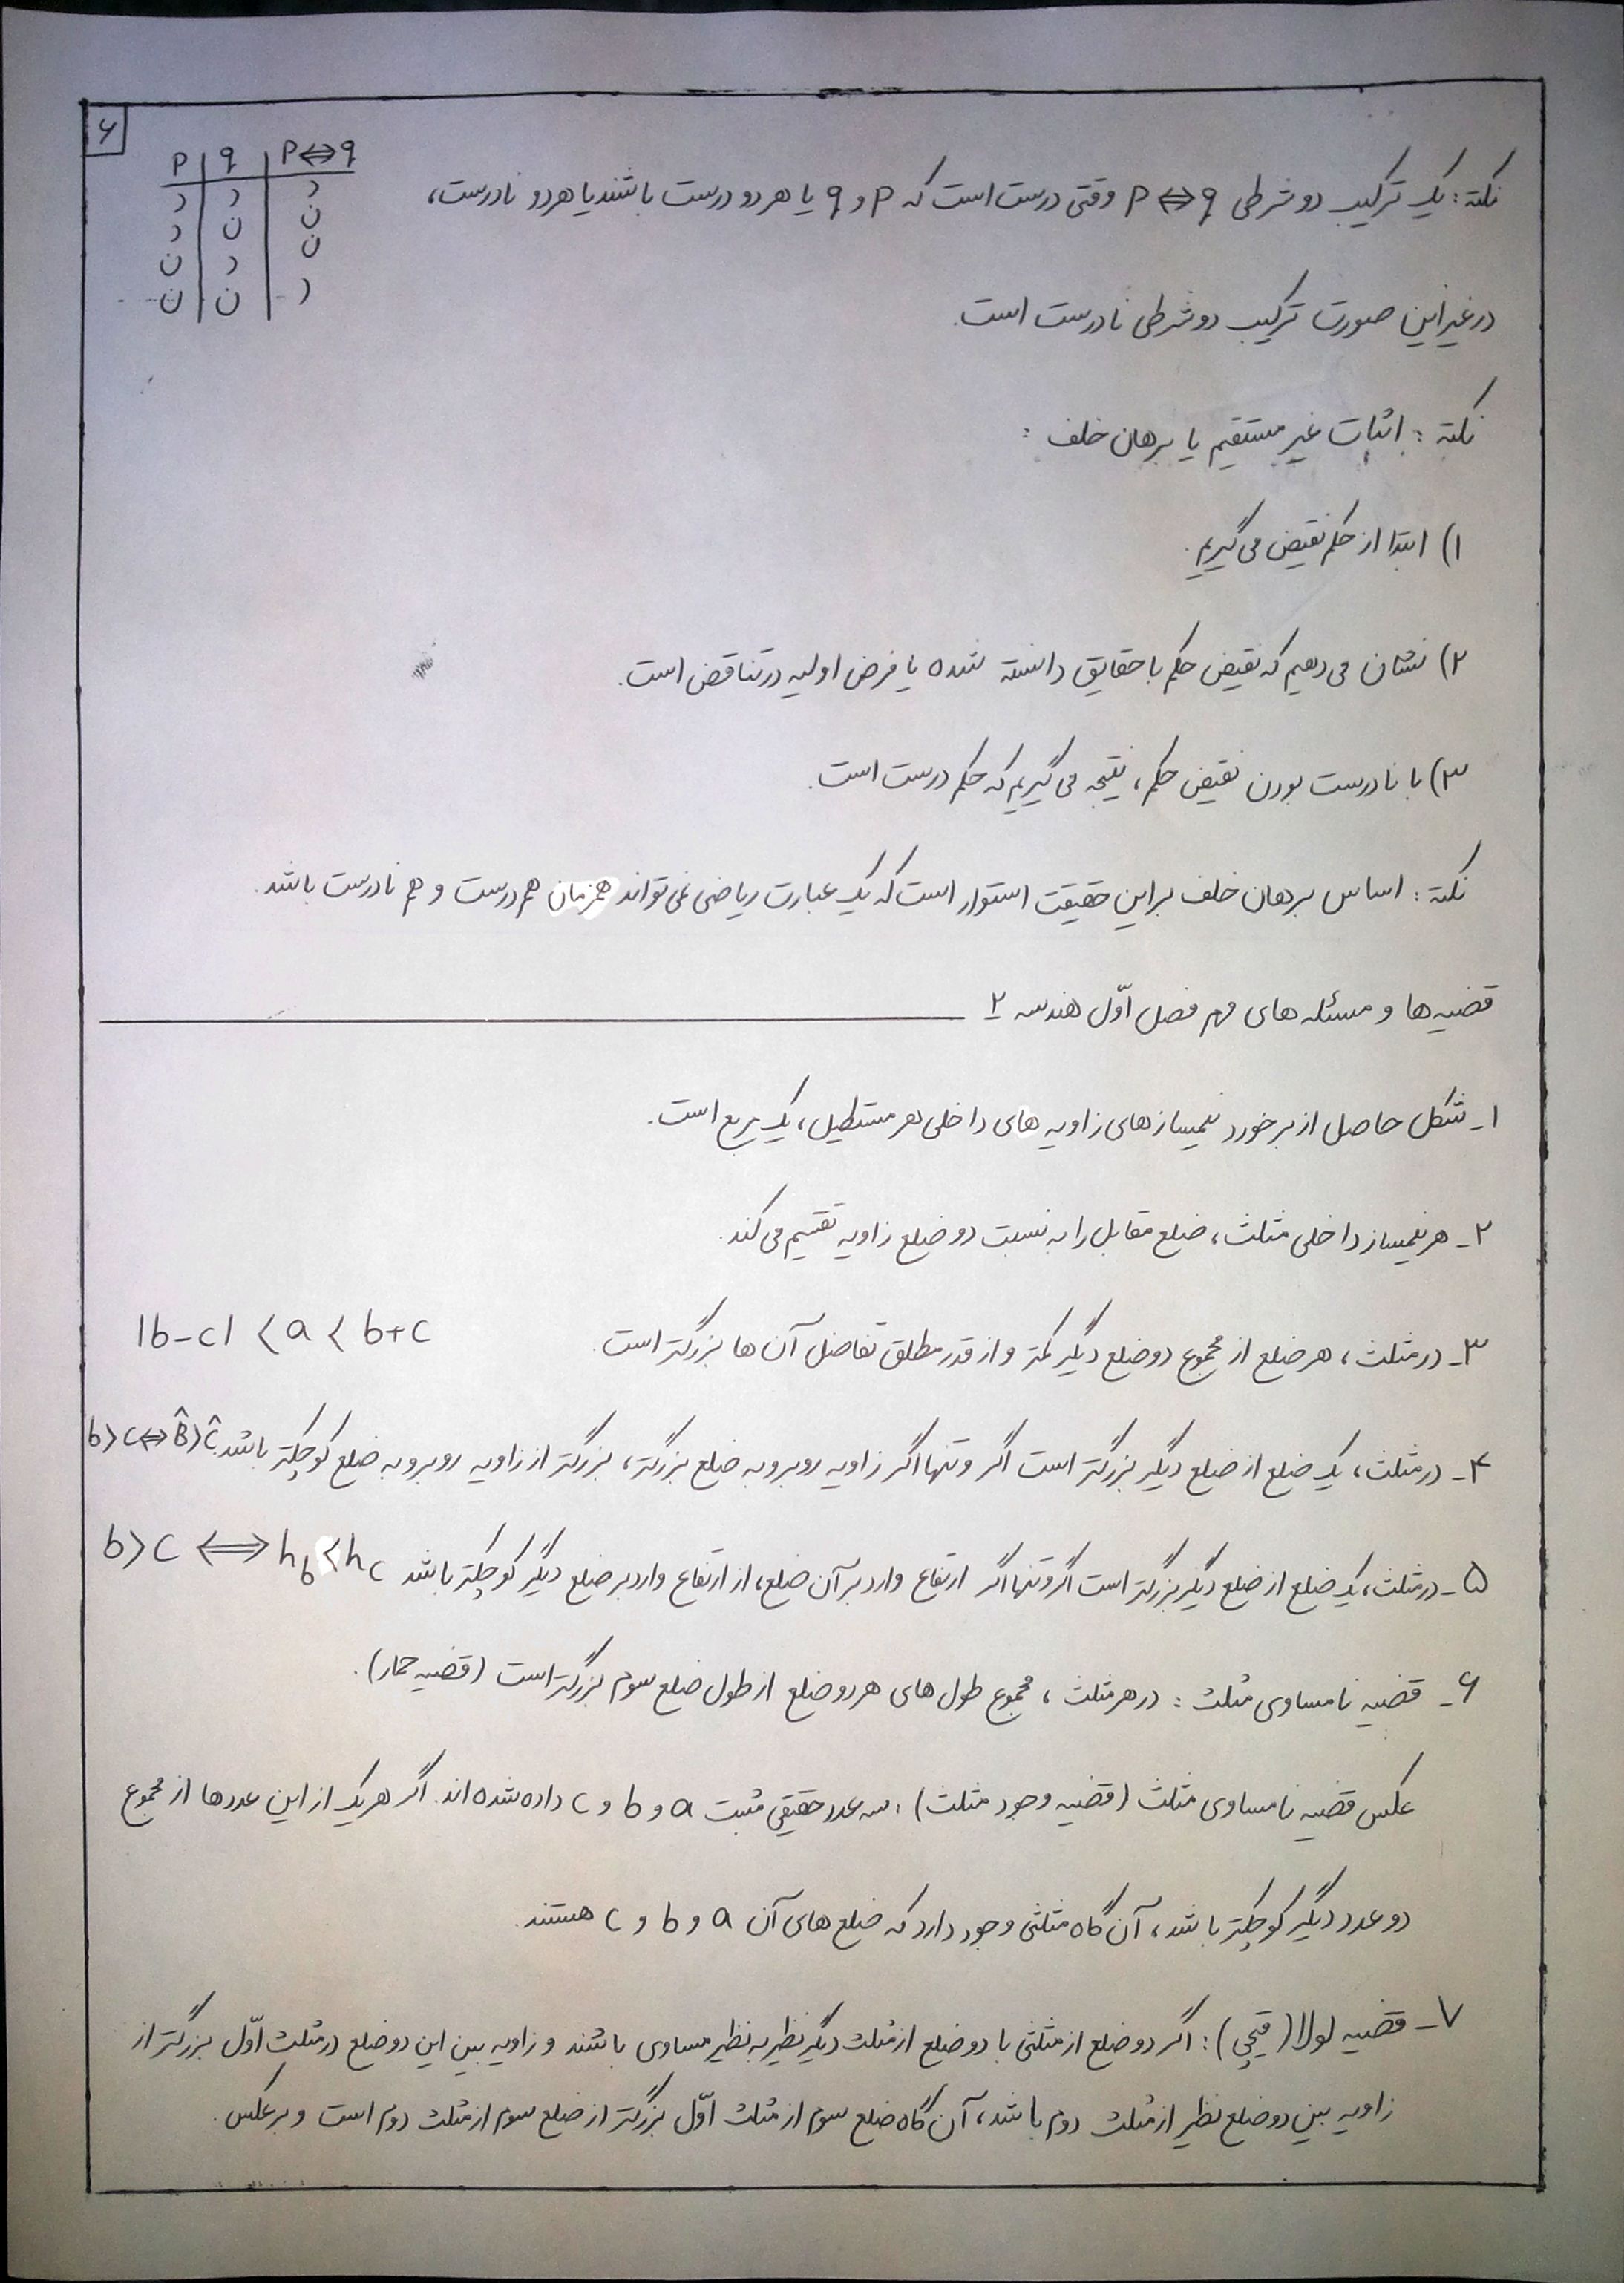 ۶
P | q | P⇔q
د | د | د
د | ن | ن
ن | د | ن
ن | ن | د
نکته : یک ترکیب دو شرطی P⇔q وقتی درست است که P و q یا هر دو درست باشند یا هر دو نادرست،
در غیر این صورت ترکیب دو شرطی نادرست است.
نکته : اثبات غیر مستقیم یا برهان خلف :
۱) ابتدا از حکم نقیض می گیریم.
۲) نشان می دهیم که نقیض حکم با حقایق دانسته شده یا فرض اولیه در تناقض است.
۳) با نادرست بودن نقیض حکم، نتیجه می گیریم که حکم درست است.
نکته : اساس برهان خلف بر این حقیقت استوار است که یک عبارت ریاضی نمی تواند همزمان هم درست و هم نادرست باشد.
قضیه ها و مسئله های مهم فصل اوّل هندسه ۲
۱- شکل حاصل از برخورد نیمسازهای زاویه های داخلی هر مستطیل، یک مربع است.
۲- هر نیمساز داخلی مثلث، ضلع مقابل را به نسبت دو ضلع زاویه تقسیم می کند.
۳- در مثلث، هر ضلع از مجموع دو ضلع دیگر کمتر و از قدر مطلق تفاضل آن ها بزرگتر است. |b-c| < a < b+c
۴- در مثلث، یک ضلع از ضلع دیگر بزرگتر است اگر و تنها اگر زاویه روبرو به ضلع بزرگتر، بزرگتر از زاویه روبرو به ضلع کوچکتر باشد. b>c⇔B̂>Ĉ
۵- در مثلث، یک ضلع از ضلع دیگر بزرگتر است اگر و تنها اگر ارتفاع وارد بر آن ضلع، از ارتفاع وارد بر ضلع دیگر کوچکتر باشد b>c ⟺ h_b<h_c
۶- قضیه نامساوی مثلث : در هر مثلث، مجموع طول های هر دو ضلع از طول ضلع سوم بزرگتر است (قضیه حمار).
عکس قضیه نامساوی مثلث (قضیه وجود مثلث) : سه عدد حقیقی مثبت a و b و c داده شده اند. اگر هر یک از این عددها از مجموع
دو عدد دیگر کوچکتر باشد، آن گاه مثلثی وجود دارد که ضلع های آن a و b و c هستند.
۷- قضیه لولا (قیچی) : اگر دو ضلع از مثلثی با دو ضلع از مثلث دیگر نظیر به نظیر مساوی باشند و زاویه بین این دو ضلع در مثلث اوّل بزرگتر از
زاویه بین دو ضلع نظیر از مثلث دوم باشد، آن گاه ضلع سوم از مثلث اوّل بزرگتر از ضلع سوم از مثلث دوم است و برعکس.